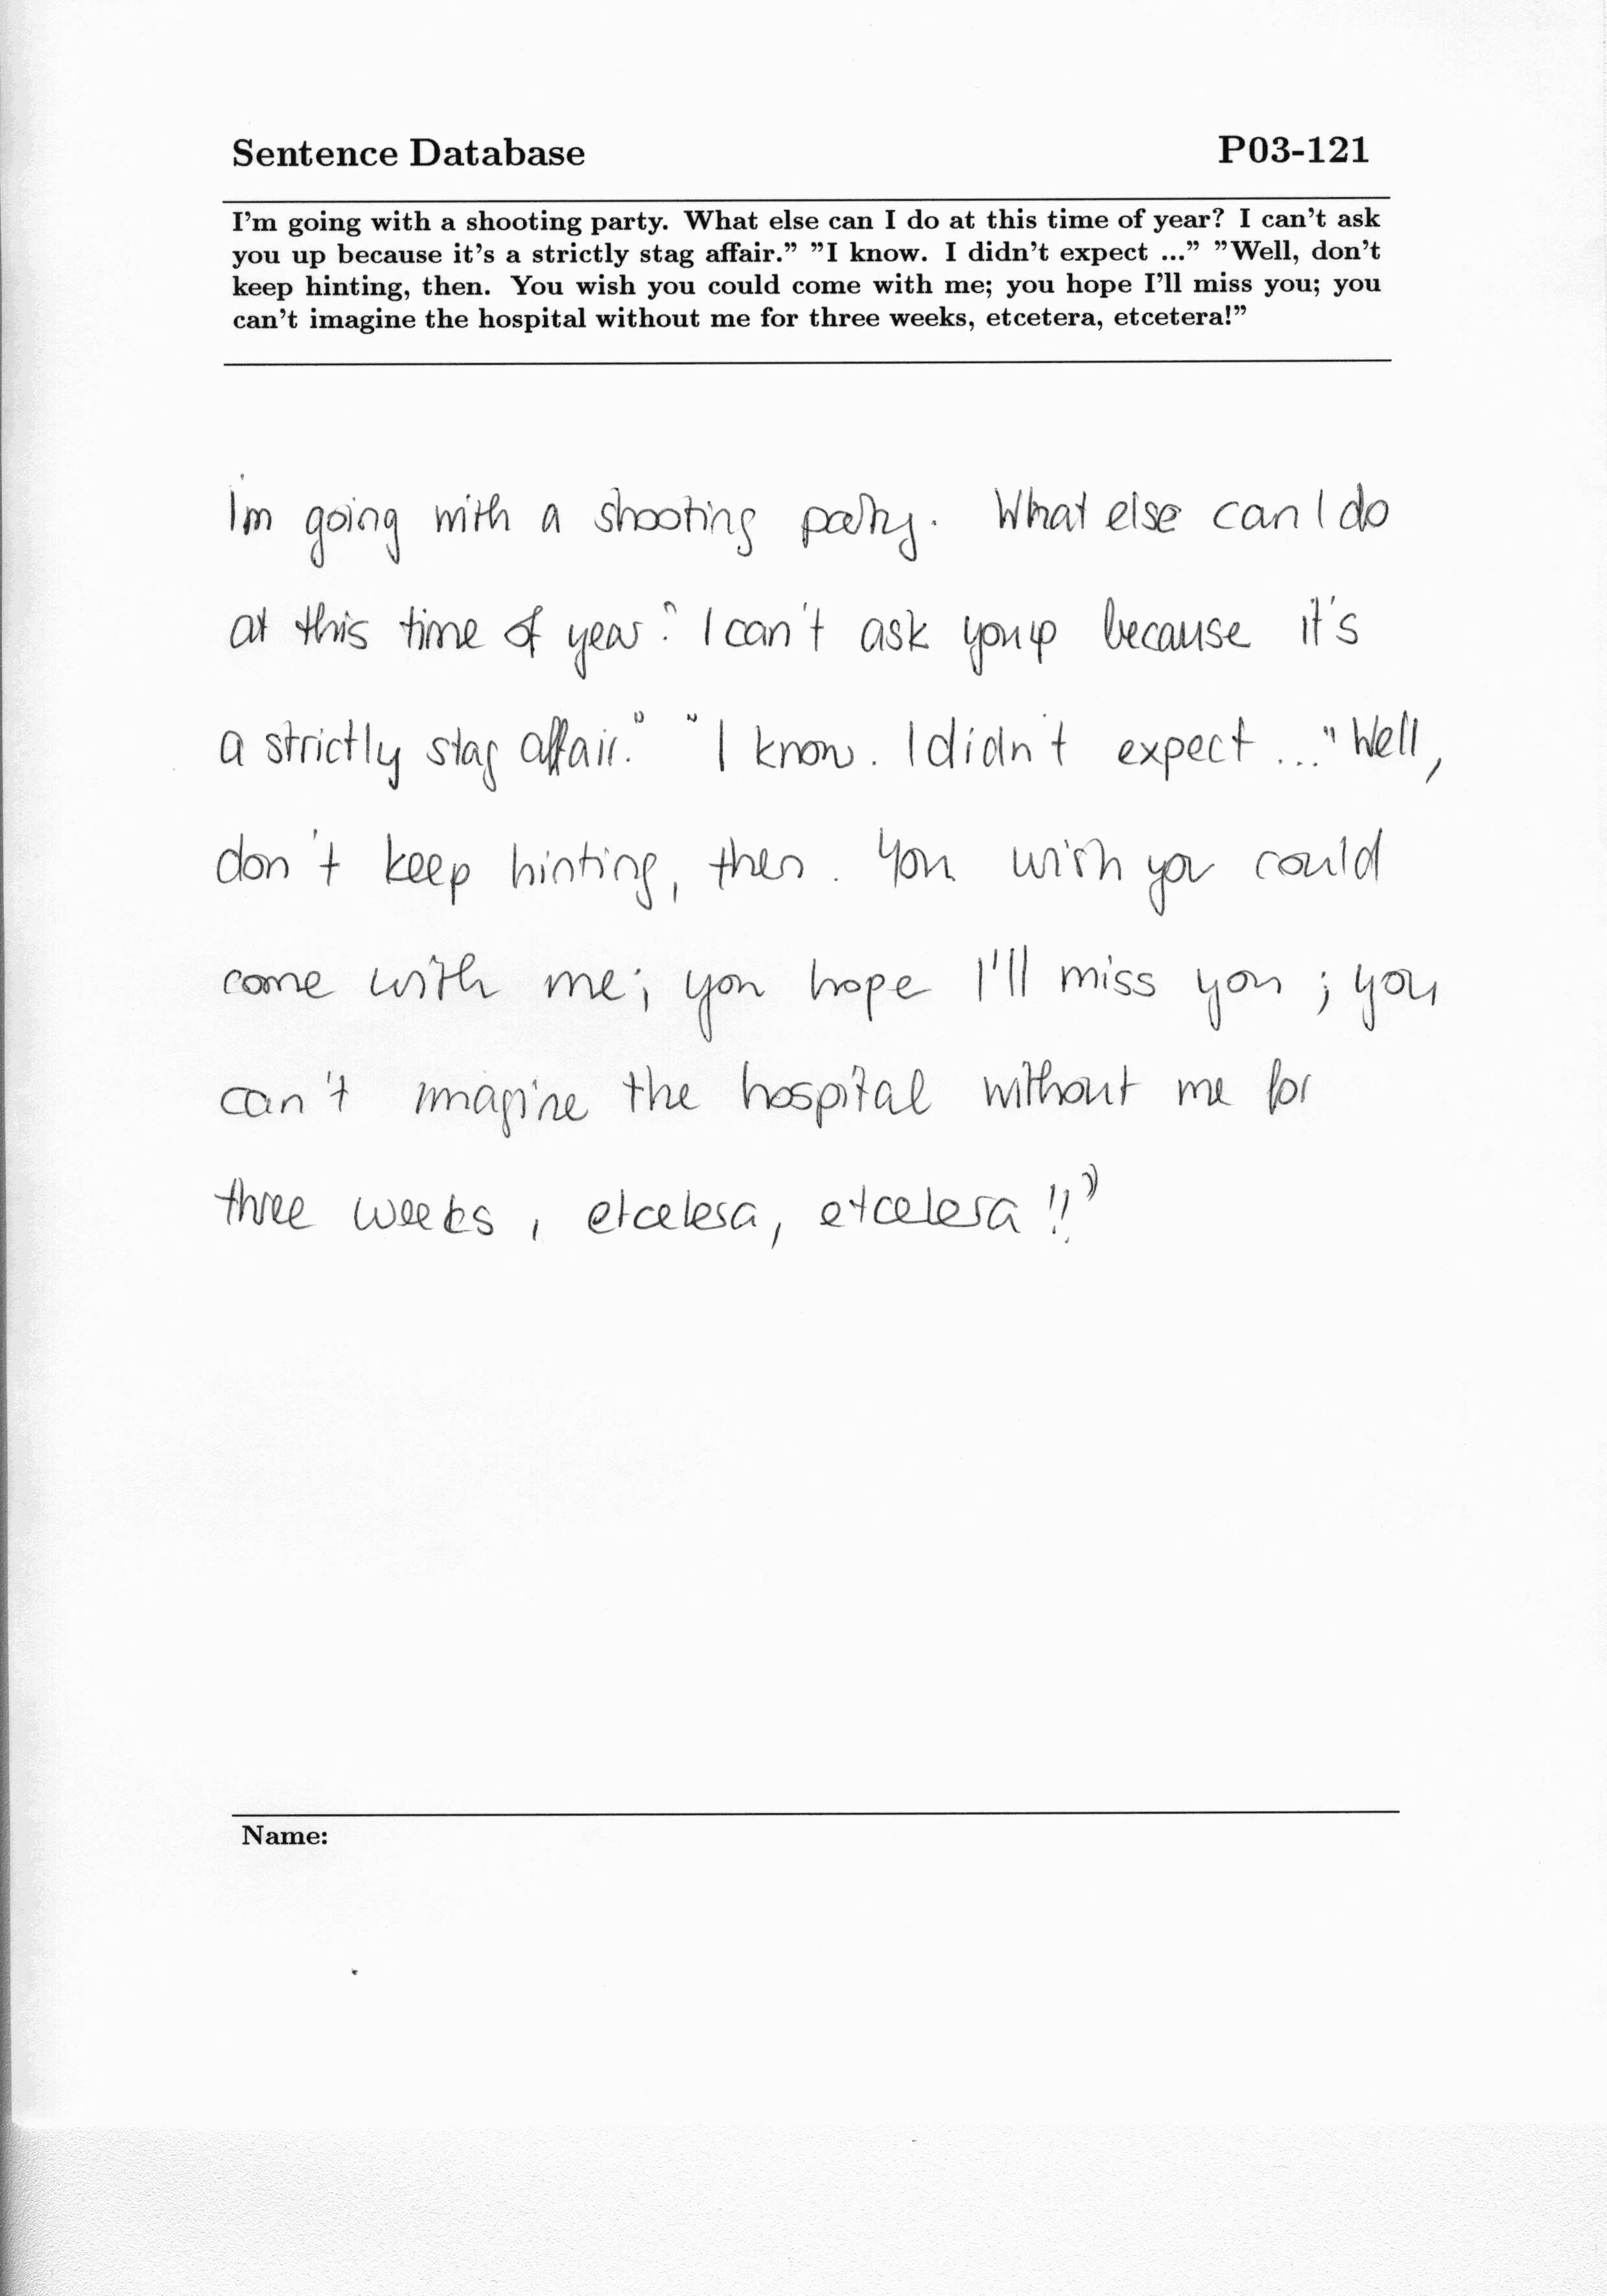 Sentence Database P03-121
I'm going with a shooting party. What else can I do at this time of year? I can't ask
you up because it's a strictly stag affair.” ”I know. I didn't expect ...” ”Well, don't
keep hinting, then. You wish you could come with me; you hope I'll miss you; you
can't imagine the hospital without me for three weeks, etcetera, etcetera!”
I'm going with a shooting party. What else can I do
at this time of year? I can't ask you up because it's
a strictly stag affair." "I know. I didn't expect ..." Well,
don't keep hinting, then. You wish you could
come with me; you hope I'll miss you; you
can't imagine the hospital without me for
three weeks, etcetera, etcetera!!"
Name: